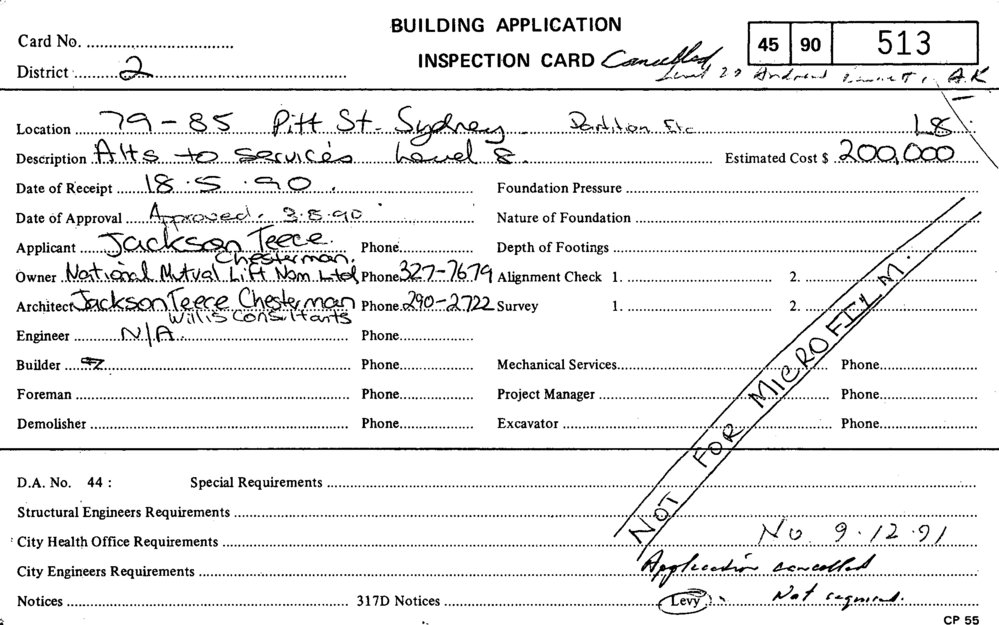 BUILDING APPLICATION
Card No.
45 90 513
INSPECTION CARD Cancelled
District 2
A.K
Location 79-85 Pitt St. Sydney Partition Etc L8
Description Alts to services Level 8. Estimated Cost $ 200,000
Date of Receipt 18.5.90. Foundation Pressure
Date of Approval Approved. 3.5.90 Nature of Foundation
Applicant Jackson Teece Chesterman. Phone Depth of Footings
Owner National Mutual Lift Nom Ltd Phone 327-7679 Alignment Check 1. 2.
Architect Jackson Teece Chesterman Phone 290-2722 Survey 1. 2.
Willis Consultants
Engineer N/A Phone
Builder Phone Mechanical Services Phone
Foreman Phone Project Manager Phone
Demolisher Phone Excavator Phone
NOT FOR MICROFILM.
D.A. No. 44 : Special Requirements
Structural Engineers Requirements
City Health Office Requirements No 9.12.91
City Engineers Requirements Application cancelled
Notices 317D Notices Levy Not required.
CP 55